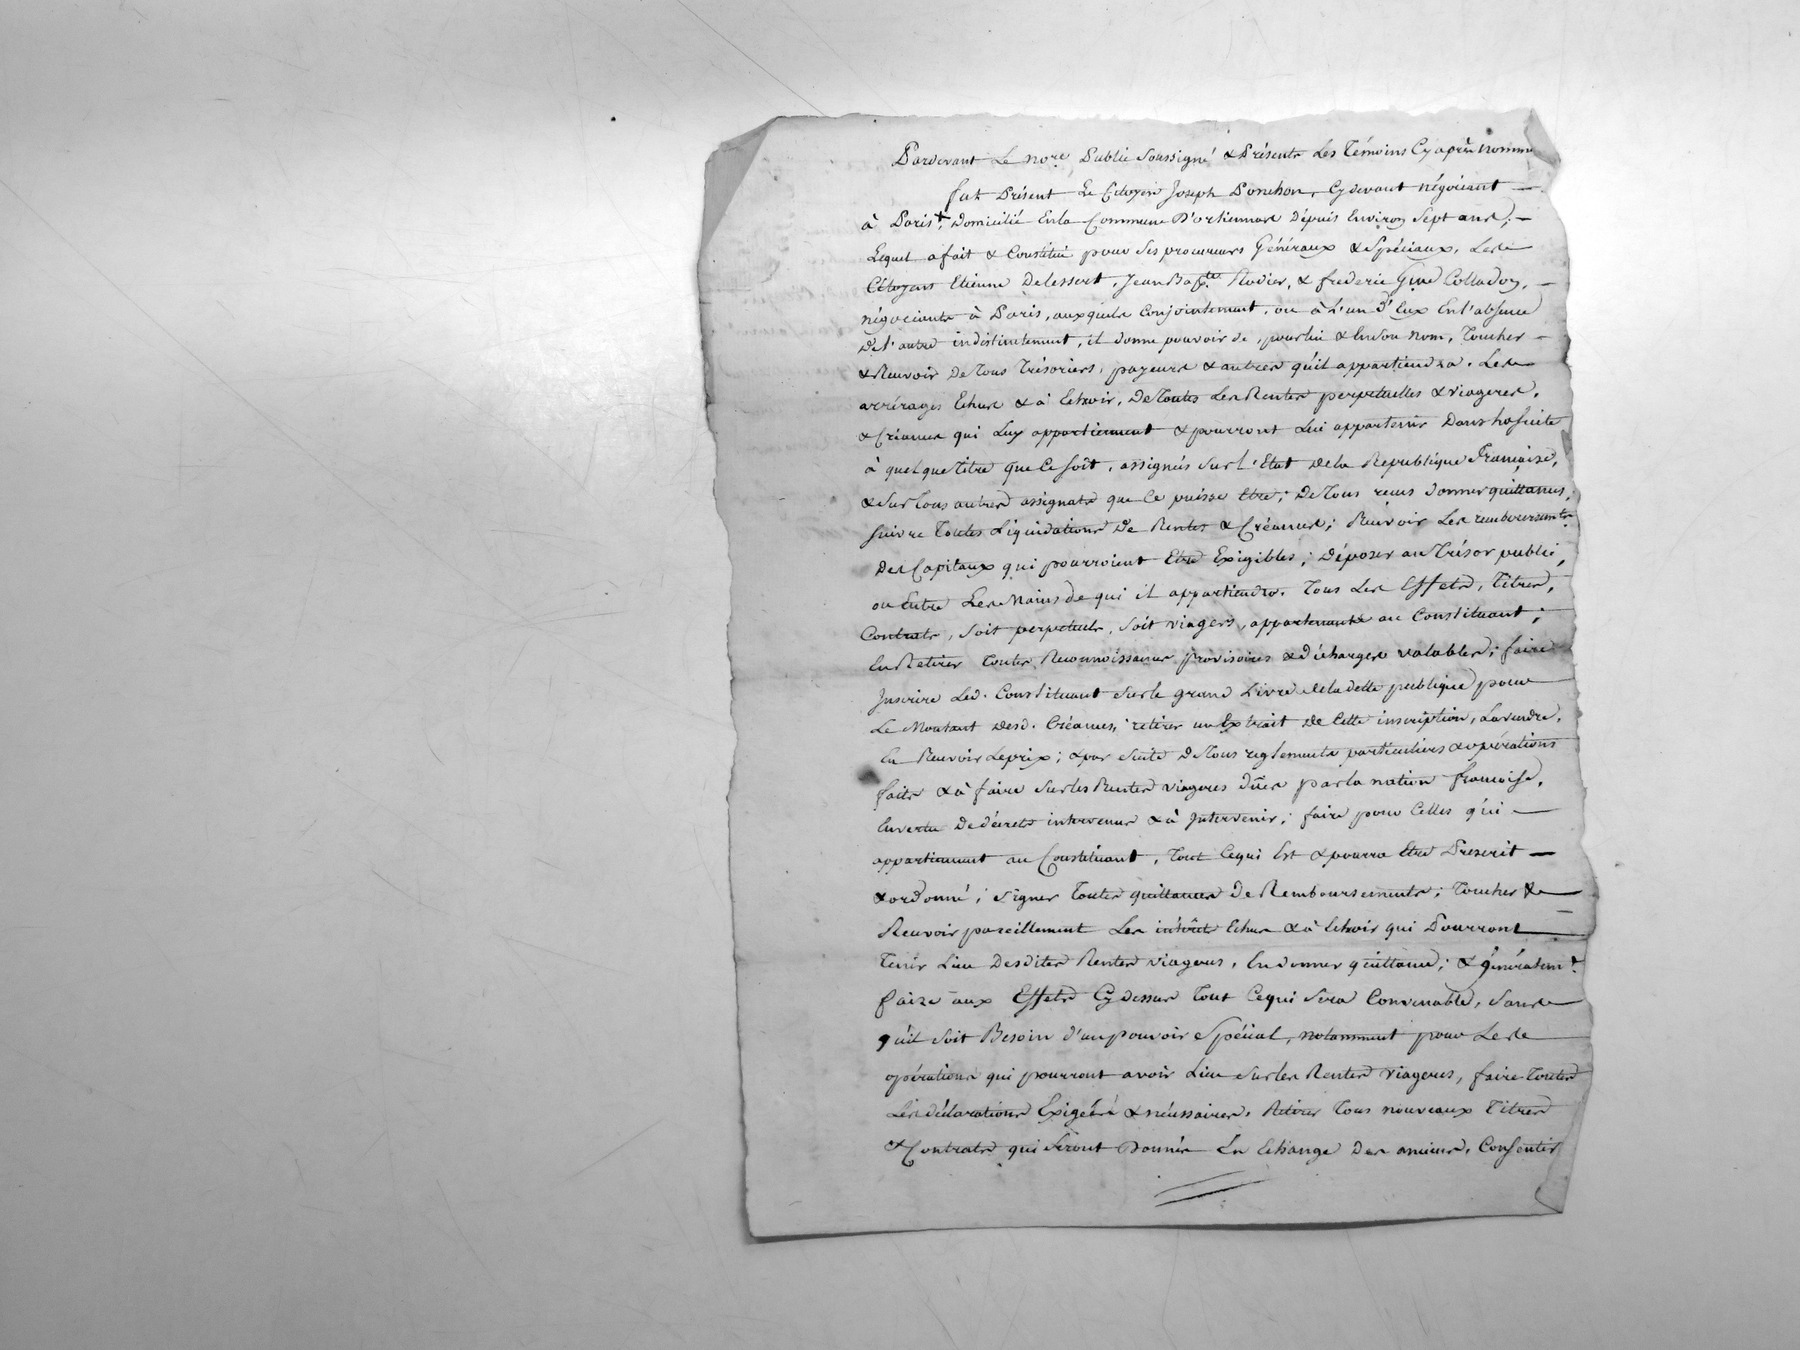 Pardevant Le nore. Public Soussigné & Présents Les Témoins Cy après nommé
fut Présent Le Citoyen Joseph Ponchon, Cy devant négociant —
à Paris, Domicilié En la Commune D'ortiennas Dépuis Environ Sept ans; —
Lequel a fait & Constitué pour Ses procureurs Généraux & Spéciaux, Les
Citoyens Etienne Delessert, Jean Bapte. Nodier, & frederic Colladon, —
négociants à Paris, auxquels Conjointement, ou à L'un D'Eux En l'absence
De l'autre indistinctement, il donne pouvoir de, pour lui & En Son Nom, Toucher —
& Recevoir De Tous Trésoriers, payeurs & autres qu'il appartiendra. Les
arrérages Echus & à Echoir, De Toutes Les Rentes perpetuelles & viageres,
& Créances qui Luy appartiennent & pourront Lui appartenir Dans la Suite
à quelque Titre que Ce Soit, assignés Sur L'Etat De la Republique Française,
& Sur Tous autres assignats que Ce puisse Etre; De Tous reçus donner quittances,
Suivre Toutes Liquidations De Rentes & Créances; Reçevoir Les remboursemts.
Des Capitaux qui pourroient Etre Exigibles; Déposer au Trésor public,
ou Entre Les Mains de qui il appartiendra, Tous Les Effets, Titres,
Contrats, Soit perpetuels, Soit viagers, appartenants au Constituant;
En Retirer Toutes Reconnoissances provisoires & décharges valables; faire
Inscrire Led. Constituant Sur le grand Livre de la dette publique pour
Le Montant Desd. Créances, retirer un Extrait De Cette inscription, La vendre,
En Recevoir Le prix; & par Suite De Tous reglements particuliers & opérations
faits & à faire Sur les Rentes viageres dûes par la nation françoise,
En vertu De décrets intervenus & à Intervenir; faire pour Celles qui —
appartiennent au Constituant, Tout Ce qui Est & pourra Etre Prescrit —
& ordonné; Signer Toutes quittances De Remboursements; Toucher &
Recevoir pareillement Les intérêts Echus & à Echoir qui Pourront
Tenir Lieu Desdites Rentes viageres, En donner quittance; & généralemt.
faire aux Effets Cy Dessus Tout Ce qui Sera Convenable, Sans
qu'il Soit Besoin d'un pouvoir Spécial, notamment pour Les
opérations qui pourront avoir Lieu Sur les Rentes viageres, faire Toutes
Les déclarations Exigées & nécessaires, Retirer Tous nouveaux Titres
& Contrats qui Seront Donnés En Echange Des anciens, Consentir